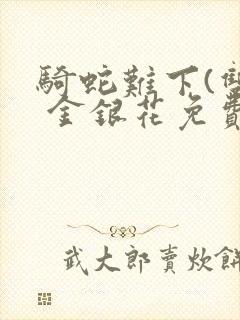 騎蛇難下(雙
金銀花免費
武大郎賣炊餅